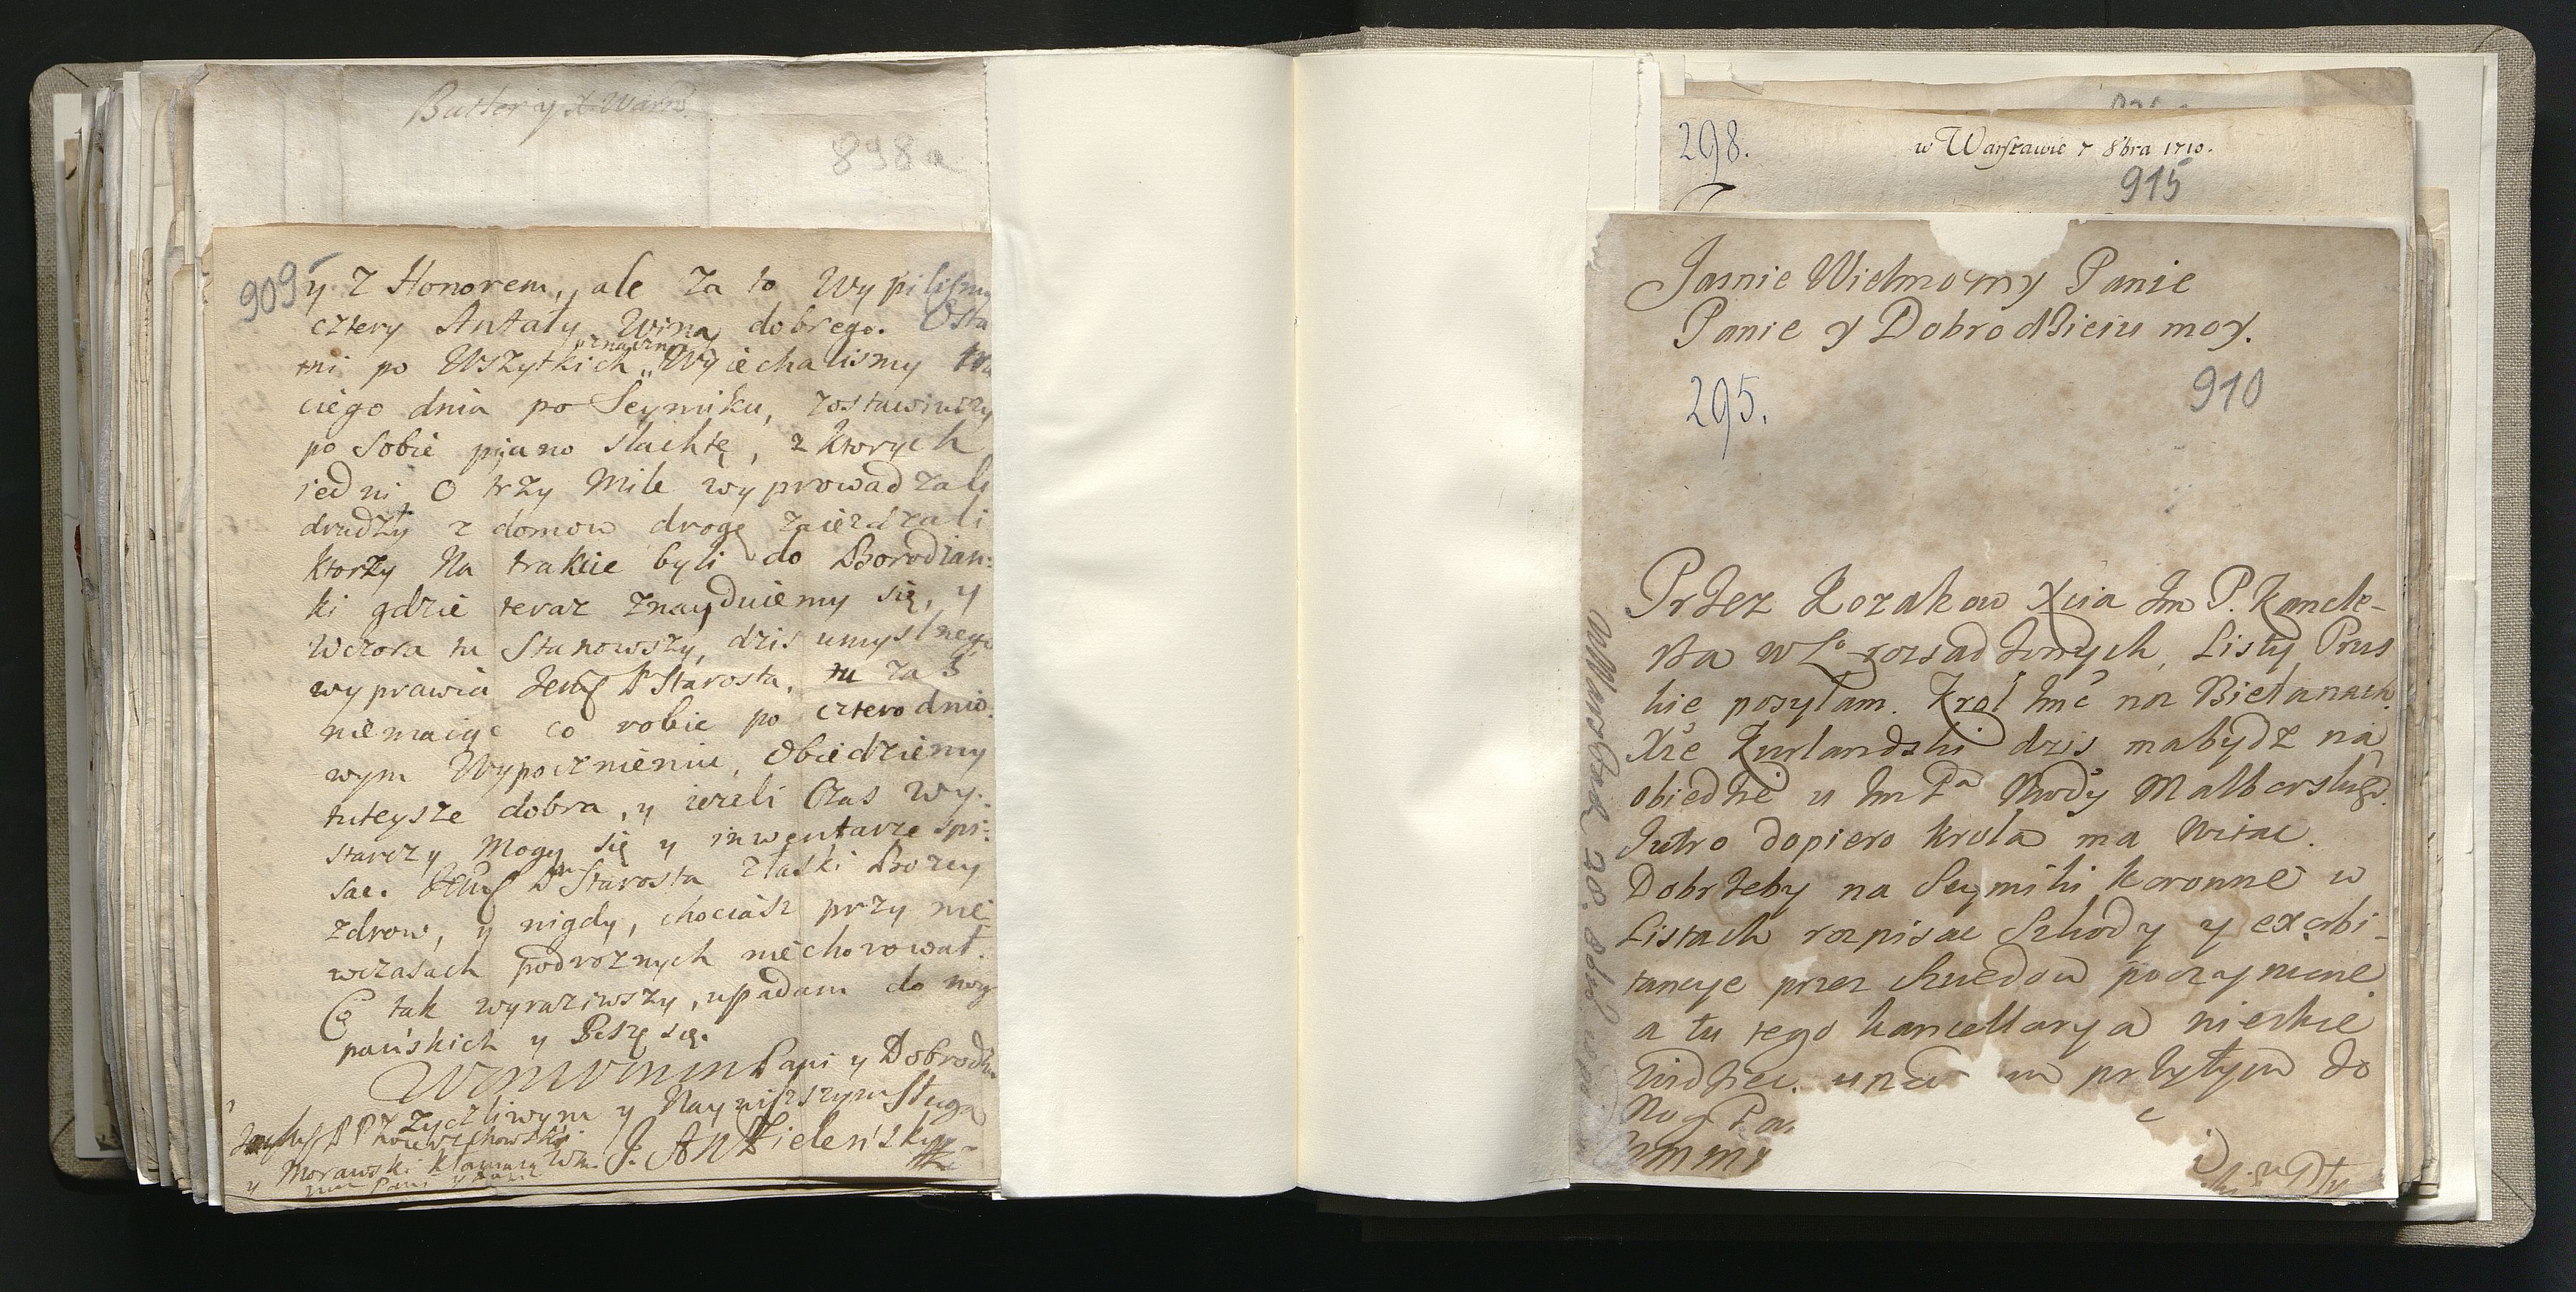 Butler y X Warm
898a
909
y z Honorem, ale za to Wypilismy
cztery Antały Wina dobrego. Osta
tni po Wszytkich Wyiechalismy trze
ciego dnia po Seymiku, zostawiwszy
po sobie pjano slachtę, z ktorych
iedni o trzy Mile wyprowadzali
drudzy z domow drogę zaiezdzali
ktorzy Na trakcie byli do Borodian:
ki gdzie teraz znayduiemy się, y
wczora tu Stanowszy, dzis umyslnego
wyprawia Jmsć Pn Starosta, tu za 3
niemaiąc co robic po cztero dnio:
wym Wypocznieniu, Obiedziemy
tuteysze dobra, y iezeli Czas wy:
starczy Mogą się y inwentarze spi:
sac. Jmsć Pn Starosta z łaski Bozey
zdrow, y nigdy, chociasz przy nie
wczasach podroznych niechorował.
Co tak wyraziwszy, upadam do nog
pańskich y Piszę się.
WMWMM Pani y Dobrodki
Zyczliwym y Nayniszszym Sługą
J. A Zieleńsky
Morawski kłaniaią
298.
w Warszawie 7 8bra 1710.
915
Jasnie Wielmozny Panie
Panie y Dobrodzieiu moy.
295.
910
Przez Kozakow Xcia Jm P. Kancle-
rza w Lo rozsadzonych, Listy Prus
kie posyłam. Krol Jmć na Bielanach.
Xże Kurlandzki dzis mabydz na
obiedzie u Jm Pa Mardy Malborskiego.
Jutro dopiero krola ma witac.
Dobrzeby na Seymiki koronne w
Listach rozpisac Szkody y exorbi-
tancye przez Szwedow poczynione
a tu tego kancellarya niechce
widziec. upa m przytym do
Nog Pa